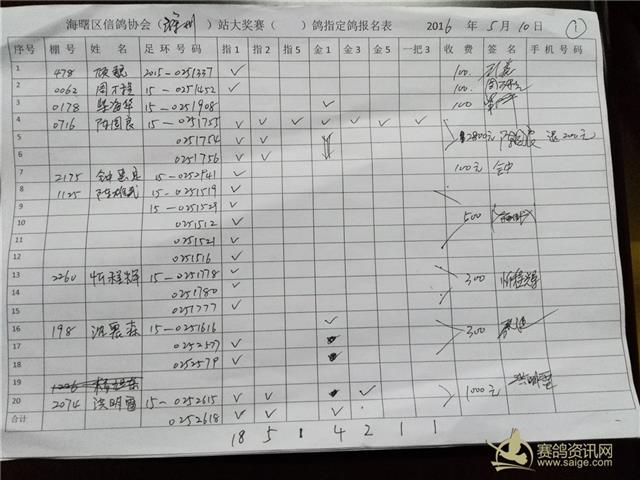 海曙区信鸽协会（ ）站大奖赛（ ）鸽指定鸽报名表 2016 年 5 月 10 日 ①
序 棚号 姓名 足环号码 指1 指2 指5 金1 金2 金5 一把3 收费 签名 手机号码
1 478 2015-0251337 ✓ 100.
2 0062 15-0251452 ✓ 100.
3 0178 15-0251908 ✓ 100
4 0716 陈国良 15-0251755 ✓ ✓ ✓ ✓ ✓ ✓ ✓
5 0251754 ✓ ✓ 2800元 退200元
6 0251756 ✓ ✓
7 2175 15-0252941 ✓ 100元
8 1125 陈雄武 15-0251519 ✓
9 15-0251529 ✓
10 0251512 ✓ 500
11 0251521 ✓
12 0251516 ✓
13 2260 忻程辉 15-0251778 ✓ 300 忻程辉
14 0251780 ✓
15 0251777 ✓
16 198 15-0251616 ✓
17 0252577 ✓ 300
18 0252579 ✓
19
20 2074 洪明雷 15-0252615 ✓ ✓ ✓ 1000元
合计 0252618 ✓ ✓ ✓
18 5 1 4 2 1 1
赛鸽资讯网
www.saige.com